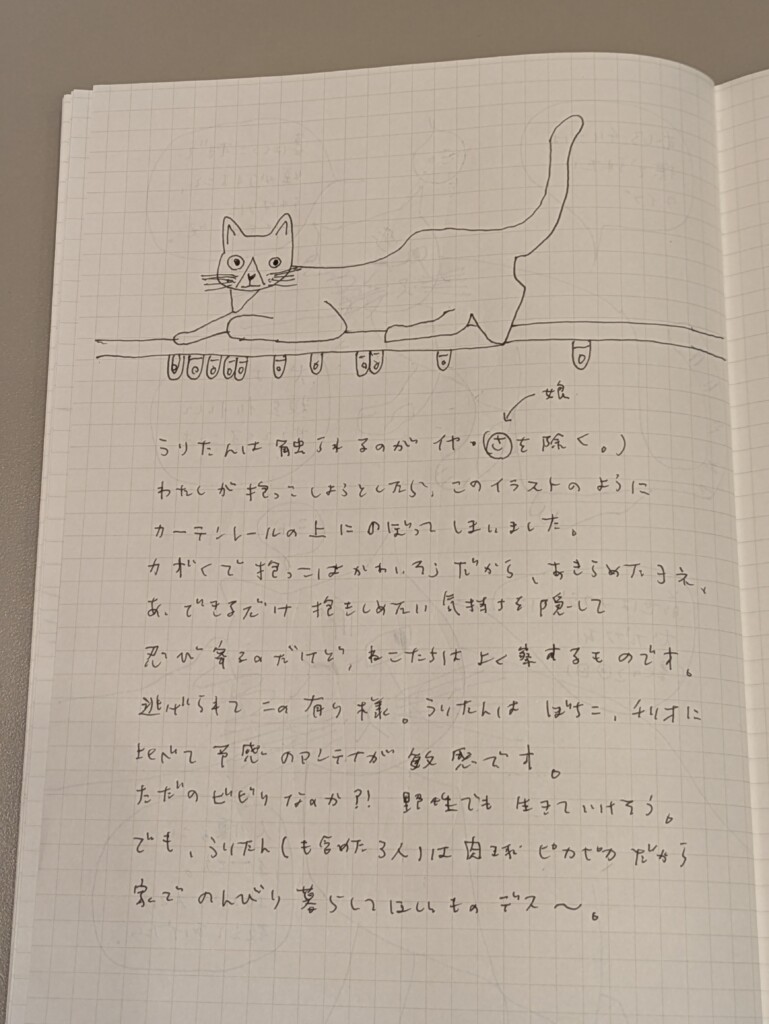 娘
うりたんは触られるのがイヤ。(さを除く。)
わたしが抱っこしようとしたら、このイラストのように
カーテンレールの上にのぼってしまいました。
力ずくで抱っこはかわいそうだから、あきらめた
あ、できるだけ抱きしめたい気持ちを隠して
忍び寄るのだけど、ねこたちはよく察するものです。
逃げられてこの有り様。うりたんはぼちこ、チリオに
比べて予感のアンテナが敏感です。
ただのビビりなのか?! 野性でも生きていけそう。
でも、うりたん(も含めた3人)は肉球がピカピカだから
家でのんびり暮らしてほしいものデス〜。